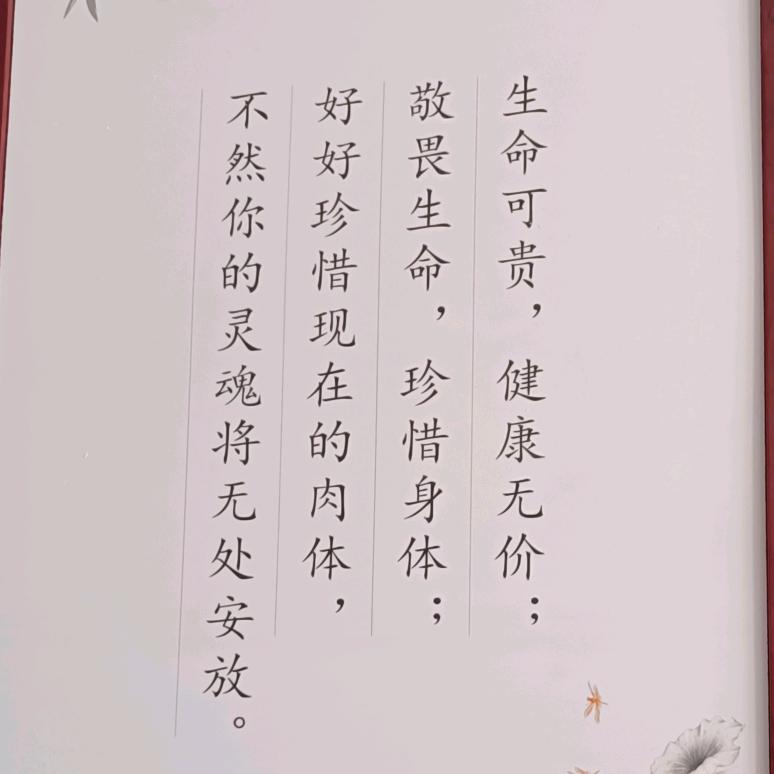 生命可贵，健康无价；
敬畏生命，珍惜身体；
好好珍惜现在的肉体，
不然你的灵魂将无处安放。